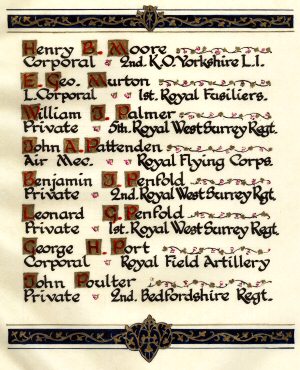 Henry B. Moore
Corporal 2nd. K.O. Yorkshire L.I.
E. Geo. Murton
L. Corporal 1st. Royal Fusiliers.
William J. Palmer
Private 5th. Royal West Surrey Regt.
John A. Pattenden
Air Mec. Royal Flying Corps.
Benjamin J. Penfold
Private 2nd. Royal West Surrey Rgt.
Leonard G. Penfold
Private 1st. Royal West Surrey Regt.
George H. Port
Corporal Royal Field Artillery
John Poulter
Private 2nd. Bedfordshire Regt.